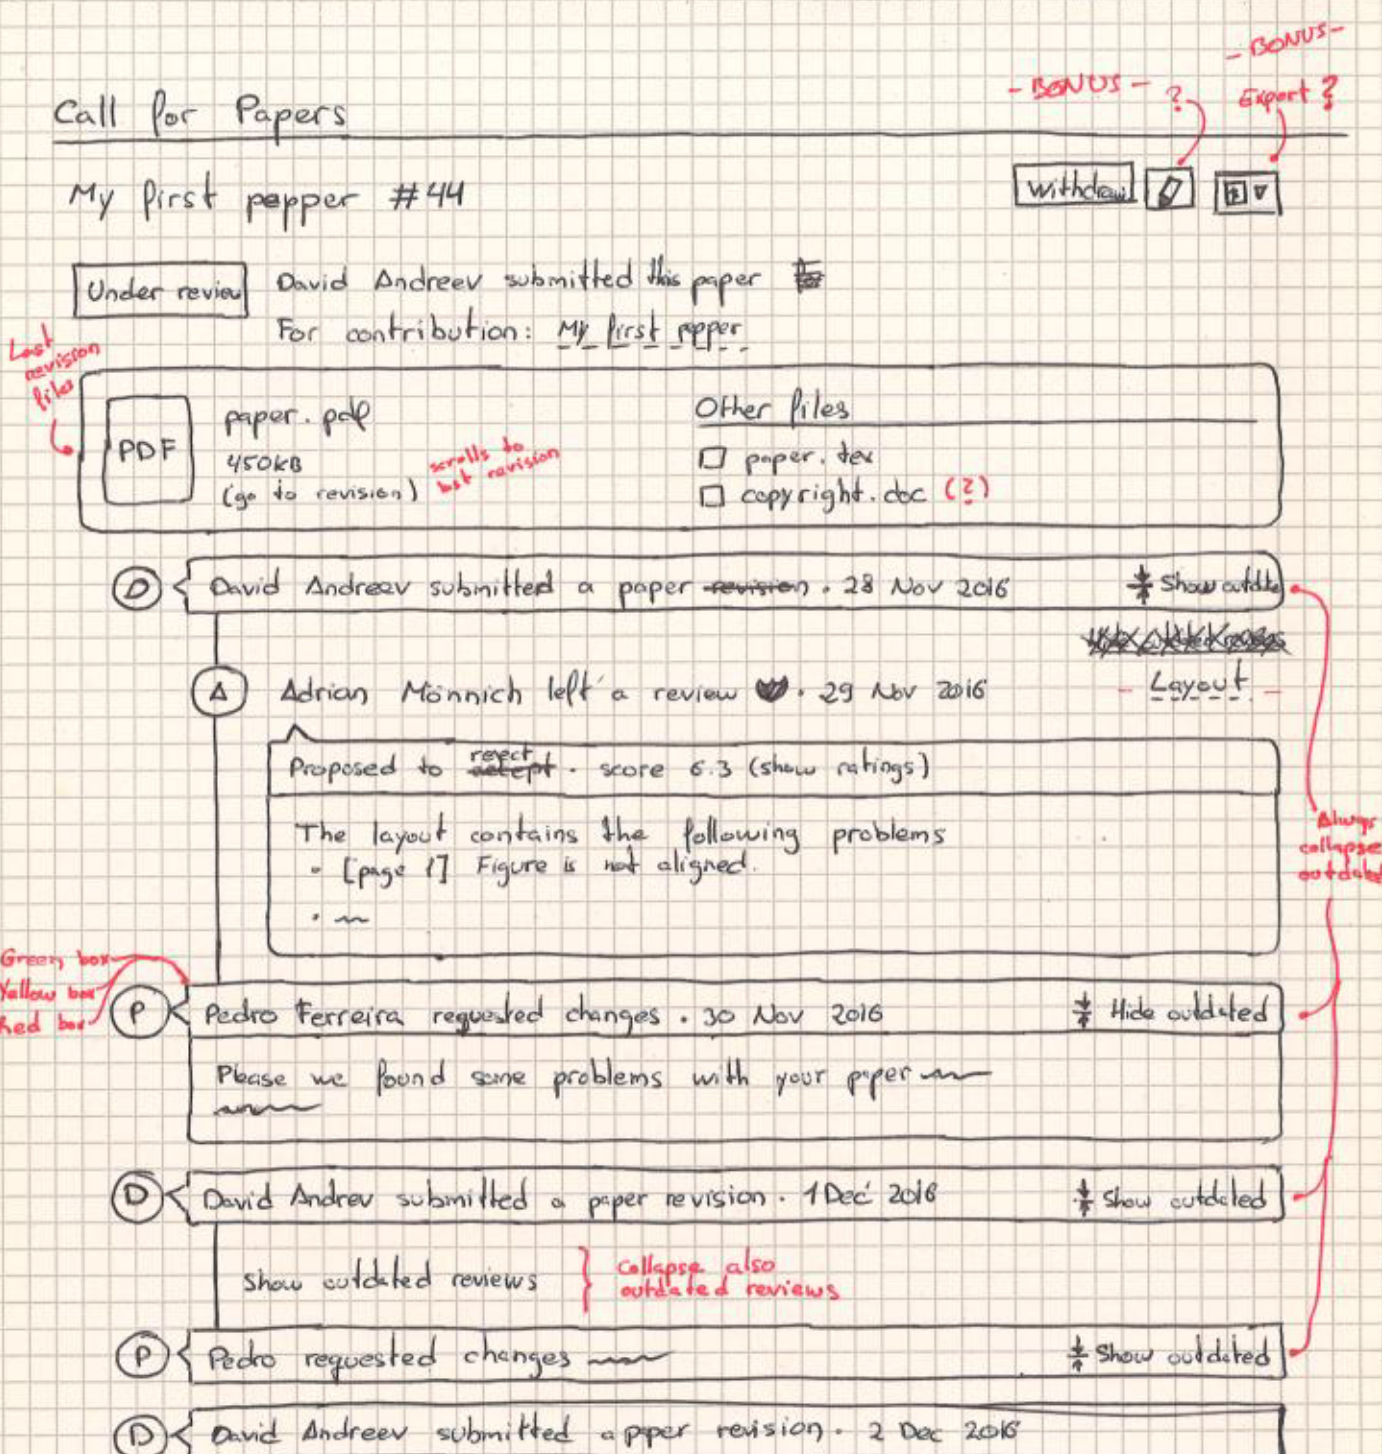 - BONUS -
- BONUS - ?
Export ?
Call for Papers
My first pepper #44
Withdraw
Under review
David Andreev submitted this paper
For contribution: My first pepper
Last
revision
files
PDF
paper.pdf
450KB
(go to revision)
scrolls to
last revision
Other files
paper.tex
copyright.doc (?)
D
David Andreev submitted a paper revision . 28 Nov 2016
Show outdate
A
Adrian Mönnich left a review . 29 Nov 2016
- Layout -
Proposed to reject accept . score 6.3 (show ratings)
The layout contains the following problems
- [page 1] Figure is not aligned.
Always
collapse
outdated
Green box
Yellow box
Red box
P
Pedro Ferreira requested changes . 30 Nov 2016
Hide outdated
Please we found some problems with your paper
D
David Andrev submitted a paper revision . 1 Dec 2016
Show outdated
Show outdated reviews
Collapse also
outdated reviews
P
Pedro requested changes
Show outdated
D
David Andreev submitted a paper revision . 2 Dec 2016